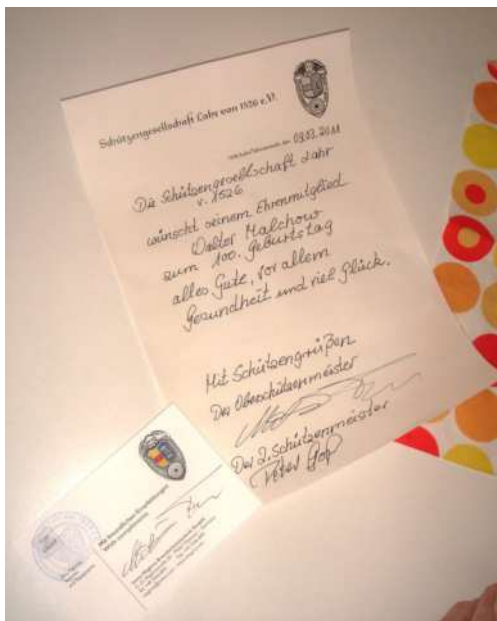 Schützengesellschaft Lahr von 1526 e.V.
den 09.03.2011
Die Schützengesellschaft Lahr
v. 1526
wünscht seinem Ehrenmitglied
Walter Malchow
zum 100. Geburtstag
alles Gute, vor allem
Gesundheit und viel Glück.
Mit Schützengrüßen
Der Oberschützenmeister
Der 2. Schützenmeister
Peter
Mit freundlichen Empfehlungen
With compliments